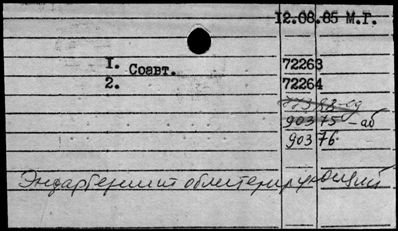 12.08.85 М.Г.
1. Соавт. 72263
2. 72264
90375-аб
90376.
Эндартериит облитерирующий